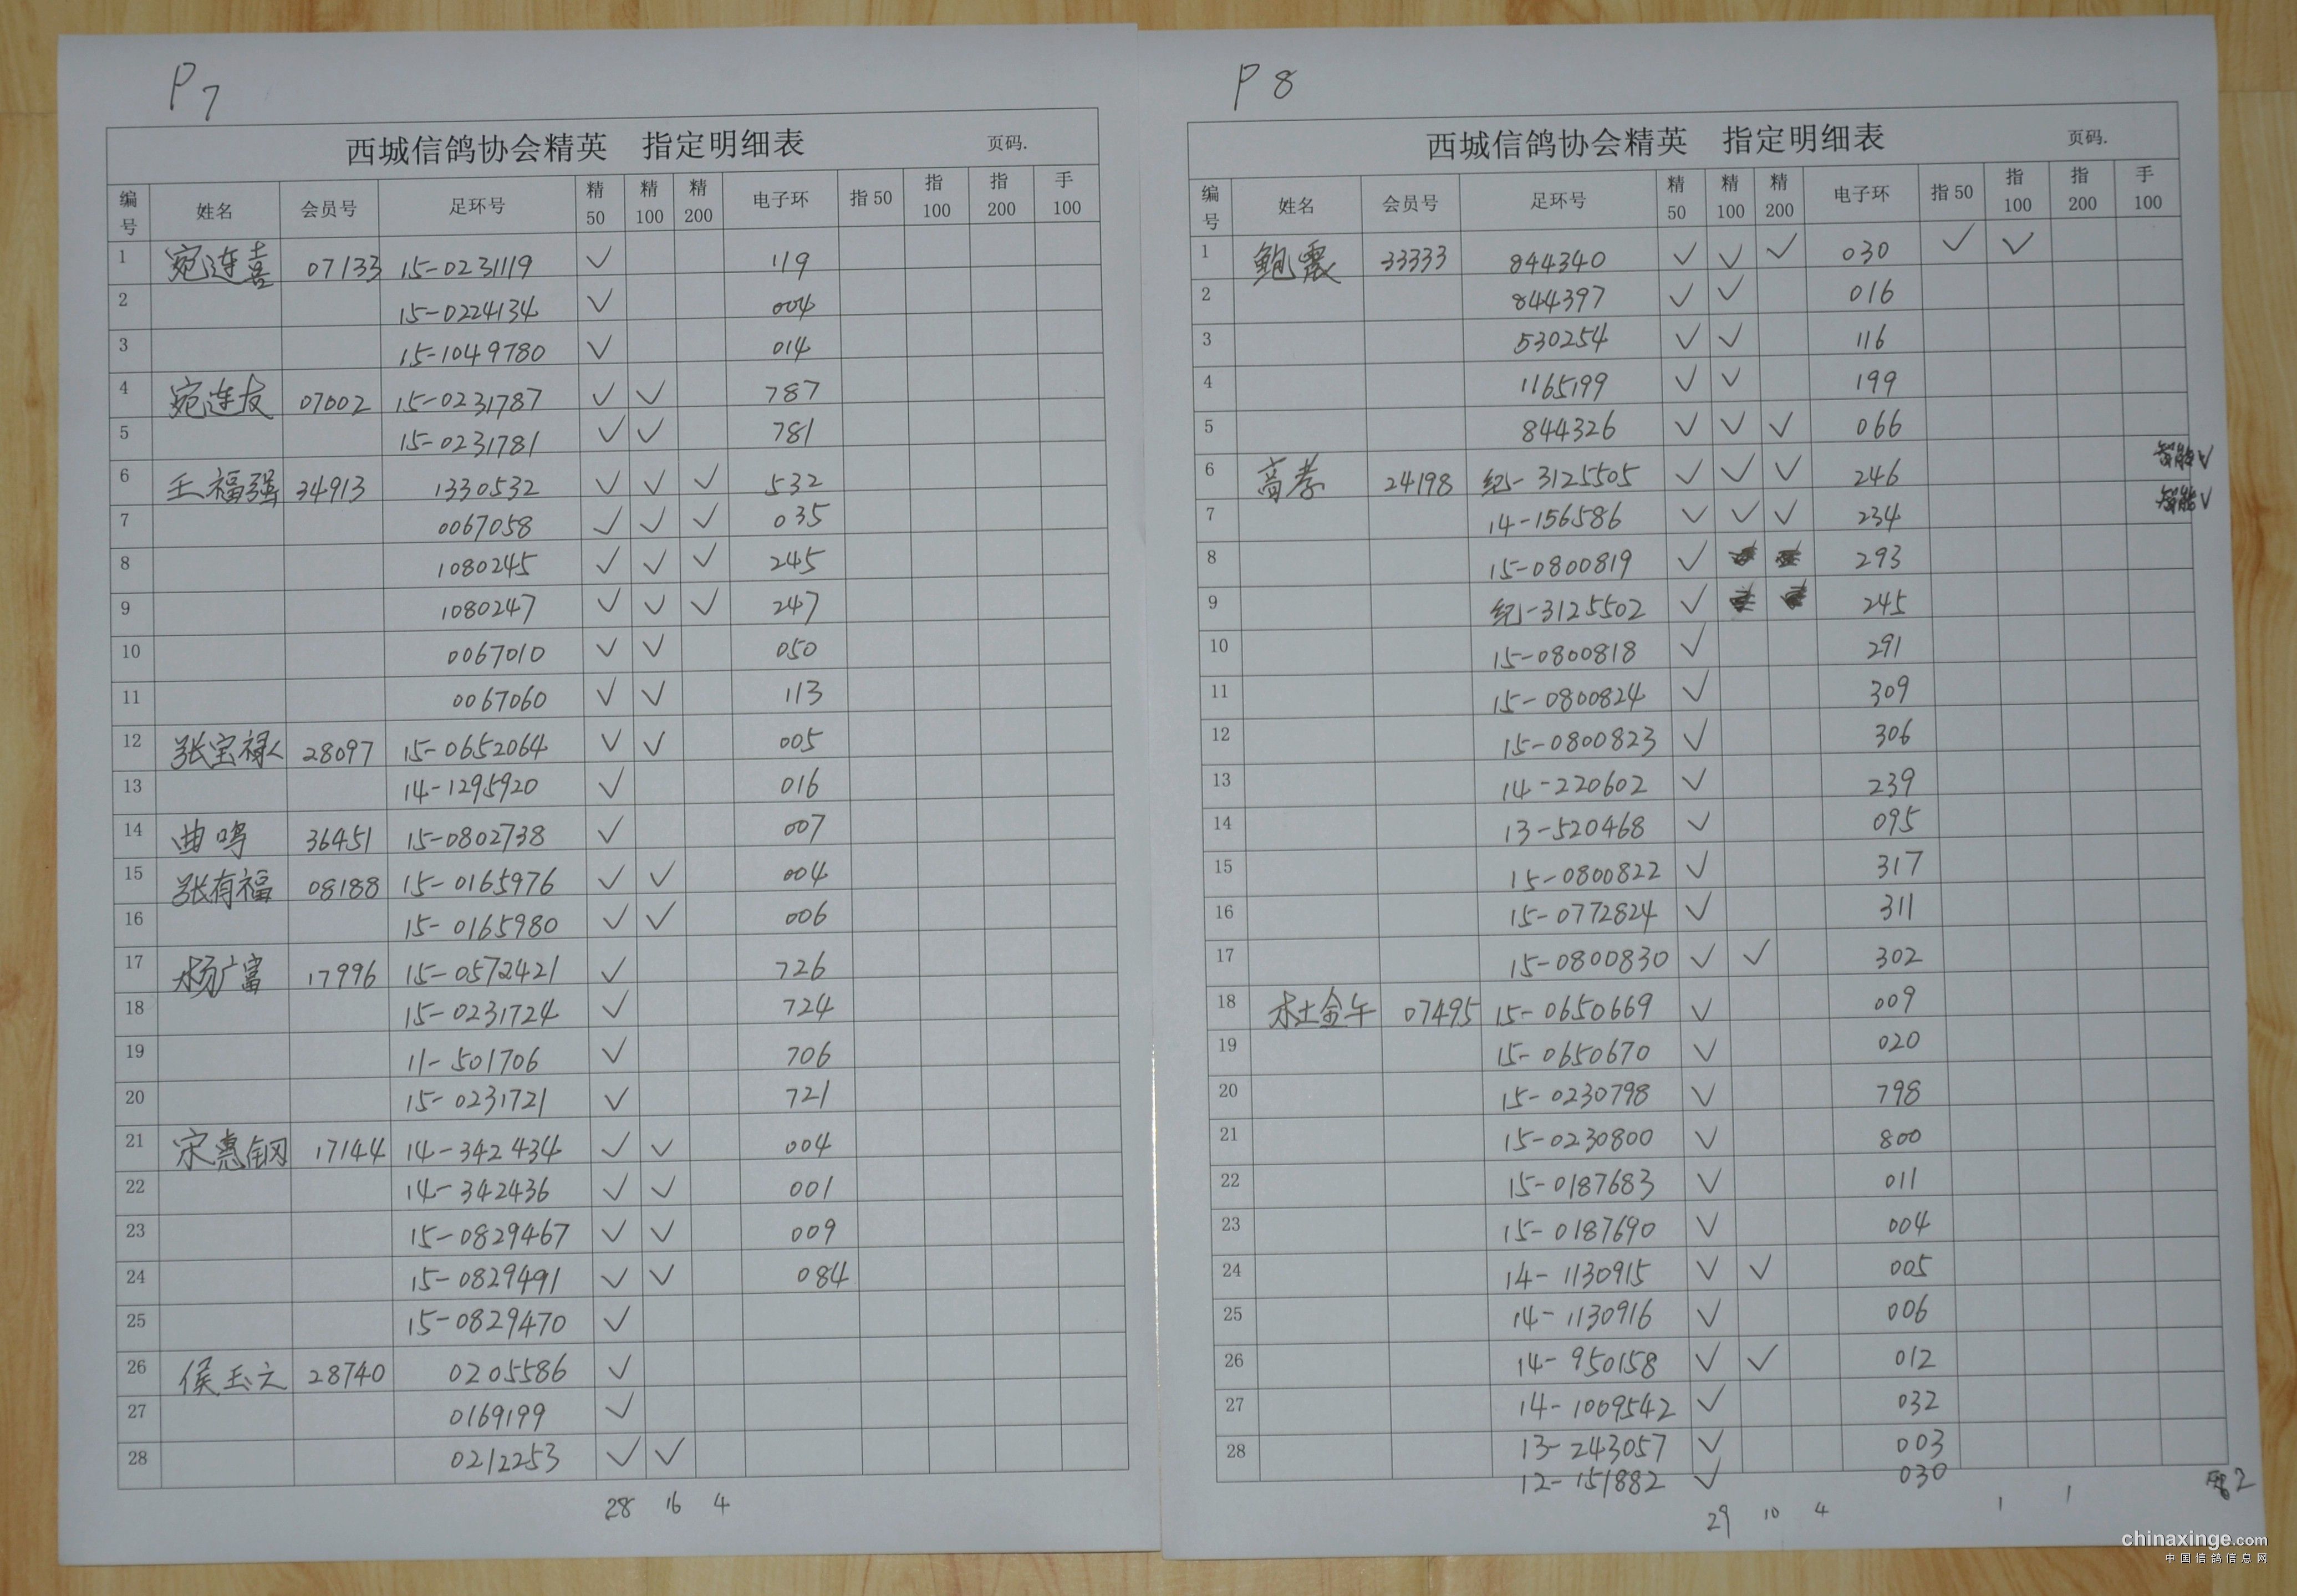 P7
西城信鸽协会精英 指定明细表 页码.
编号 姓名 会员号 足环号 精50 精100 精200 电子环 指50 指100 指200 手100
1 宛连喜 07133 15-0231119 ✓ 119
2 15-0224134 ✓ 004
3 15-1049780 ✓ 014
4 宛连友 07002 15-0231787 ✓ ✓ 787
5 15-0231781 ✓ ✓ 781
6 王福强 34913 1330532 ✓ ✓ ✓ 532
7 0067058 ✓ ✓ ✓ 035
8 1080245 ✓ ✓ ✓ 245
9 1080247 ✓ ✓ ✓ 247
10 0067010 ✓ ✓ 050
11 0067060 ✓ ✓ 113
12 张宝禄 28097 15-0652064 ✓ ✓ 005
13 14-1295920 ✓ 016
14 曲鸣 36451 15-0802738 ✓ 007
15 张有福 08188 15-0165976 ✓ ✓ 004
16 15-0165980 ✓ ✓ 006
17 杨广富 17996 15-0572421 ✓ 726
18 15-0231724 ✓ 724
19 11-501706 ✓ 706
20 15-0231721 ✓ 721
21 宋惠钢 17144 14-342434 ✓ ✓ 004
22 14-342436 ✓ ✓ 001
23 15-0829467 ✓ ✓ 009
24 15-0829491 ✓ ✓ 084
25 15-0829470 ✓
26 侯玉元 28740 0205586 ✓
27 0169199 ✓
28 0212253 ✓ ✓
28 16 4
P8
西城信鸽协会精英 指定明细表 页码.
编号 姓名 会员号 足环号 精50 精100 精200 电子环 指50 指100 指200 手100
1 鲍震 33333 844340 ✓ ✓ ✓ 030 ✓ ✓
2 844397 ✓ ✓ 016
3 530254 ✓ ✓ 116
4 1165199 ✓ ✓ 199
5 844326 ✓ ✓ ✓ 066
6 高孝 24198 纪-3125505 ✓ ✓ ✓ 246 ✓
7 14-156586 ✓ ✓ ✓ 234 智能✓
8 15-0800819 ✓ 293
9 纪-3125502 ✓ 245
10 15-0800818 ✓ 291
11 15-0800824 ✓ 309
12 15-0800823 ✓ 306
13 14-220602 ✓ 239
14 13-520468 ✓ 095
15 15-0800822 ✓ 317
16 15-0772824 ✓ 311
17 15-0800830 ✓ ✓ 302
18 杜金午 07495 15-0650669 ✓ 009
19 15-0650670 ✓ 020
20 15-0230798 ✓ 798
21 15-0230800 ✓ 800
22 15-0187683 ✓ 011
23 15-0187690 ✓ 004
24 14-1130915 ✓ ✓ 005
25 14-1130916 ✓ 006
26 14-950158 ✓ ✓ 012
27 14-1009542 ✓ 032
28 13-243057 ✓ 003
12-151882 ✓ 030
29 10 4 1 1 2
chinaxinge.com
中国信鸽信息网